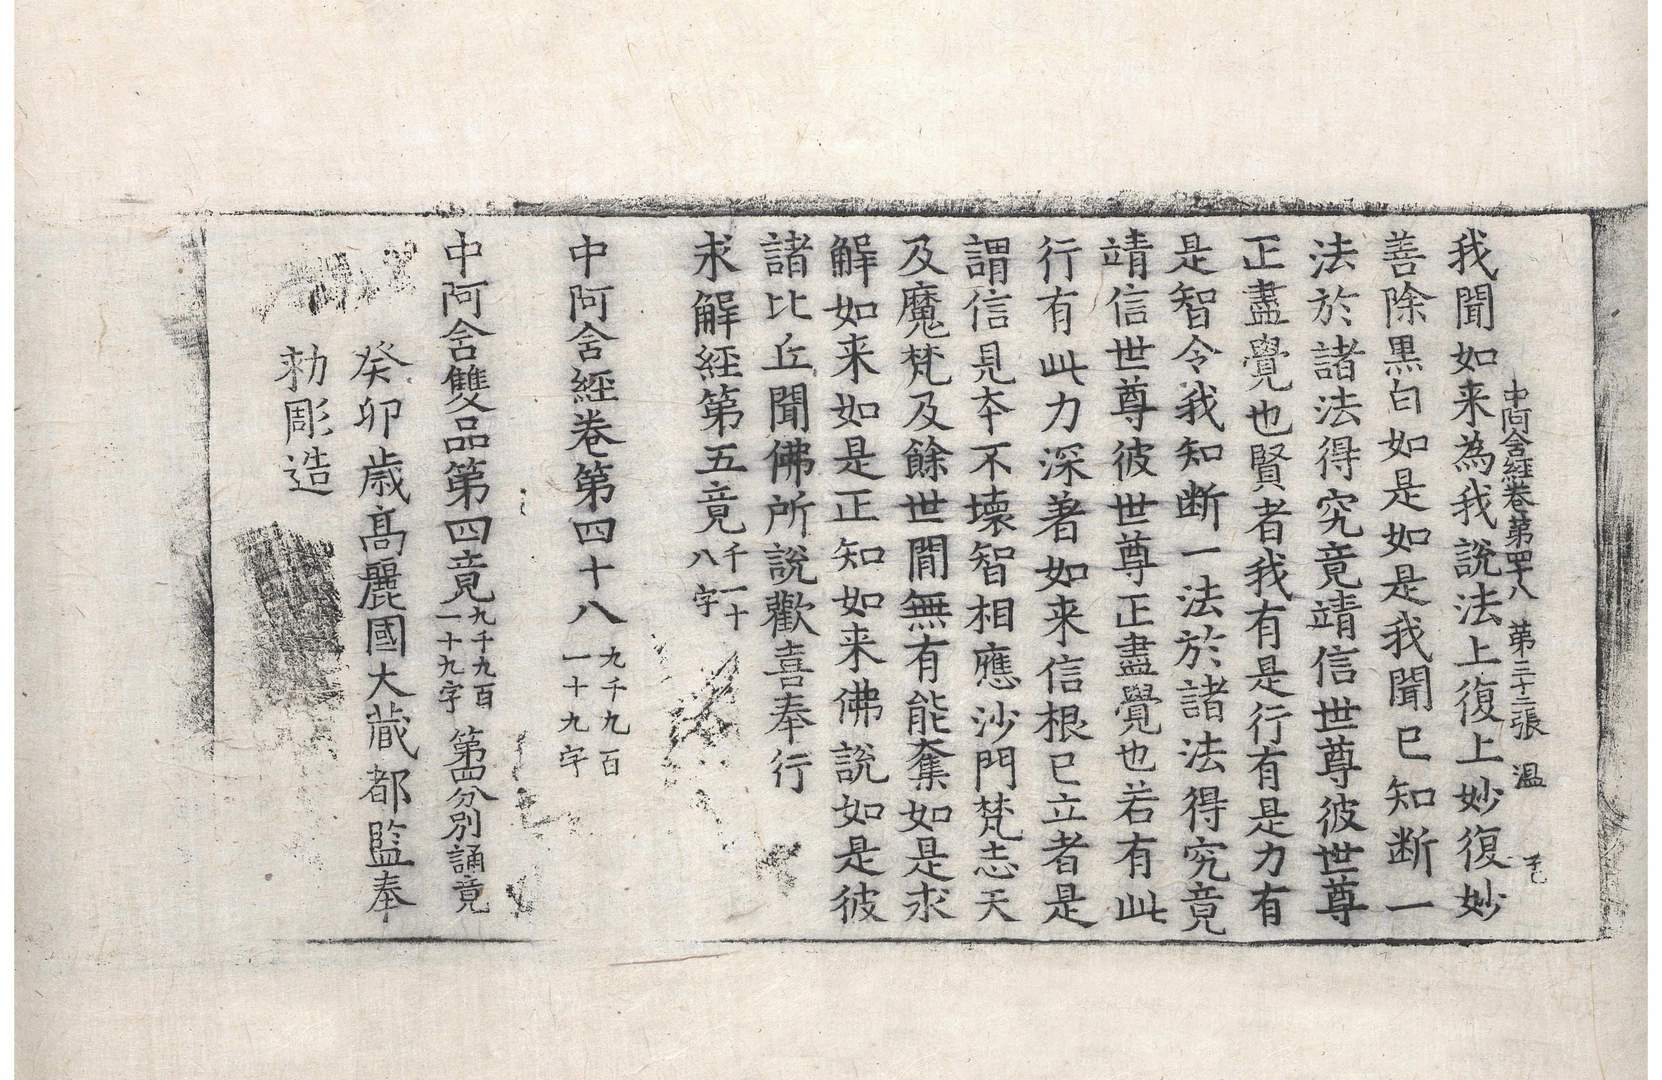 中阿含經卷第四十八　第三十二張　溫
我聞如来為我說法上復上妙復妙
善除黒白如是如是我聞已知断一
法於諸法得究竟靖信世尊彼世尊
正盡覺也賢者我有是行有是力有
是智令我知断一法於諸法得究竟
靖信世尊彼世尊正盡覺也若有此
行有此力深著如来信根已立者是
謂信見夲不壊智相應沙門梵志天
及魔梵及餘世間無有能奪如是求
解如来如是正知如来佛說如是彼
諸比丘聞佛所說歡喜奉行
求解經第五竟千一十八字
中阿含經卷第四十八九千九百一十九字
中阿含雙品第四竟九千九百一十九字第四分別誦竟
癸卯歳髙麗國大蔵都監奉
勑彫造